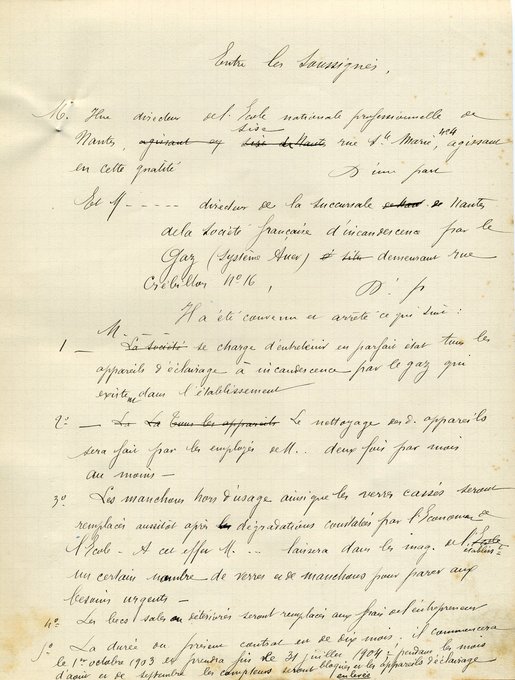 Entre les soussignés,
M. Hue directeur de l'École nationale professionnelle de
Nantes, agissant ex sise sise de Nantes rue Ste Marie, agissant
en cette qualité D'une part
Et M - - - - - directeur de la succursale de Nantes
de la Société française d'incandescence par le
Gaz (système Auer) demeurant rue
Crébillon N° 16, D'. p
Il a été convenu et arrêté ce qui suit :
M. - - -
1 - La Société se charge d'entretenir en parfait état tous les
appareils d'éclairage à incandescence par le gaz qui
existent dans l'établissement
2° - La La Tous les appareils Le nettoyage desd. appareils
sera fait par les employés de M.. deux fois par mois
au moins -
3° Les manchons hors d'usage ainsi que les verres cassés seront
remplacés aussitôt après les dégradations constatées par l'Econome de
l'Ecole - A cet effet M. - .. laissera dans les mag. de l'Ecole établisst
un certain nombre de verres et de manchons pour parer aux
besoins urgents -
4° Les becs sales ou détériorés seront remplacés aux frais de l'entrepreneur
5° La durée du présent contrat est de dix mois. il commencera
le 1er octobre 1903 et prendra fin le 31 juillet 1904 - pendant les mois
d'août et de septembre les compteurs seront bloqués et les appareils d'éclairage
enlevés